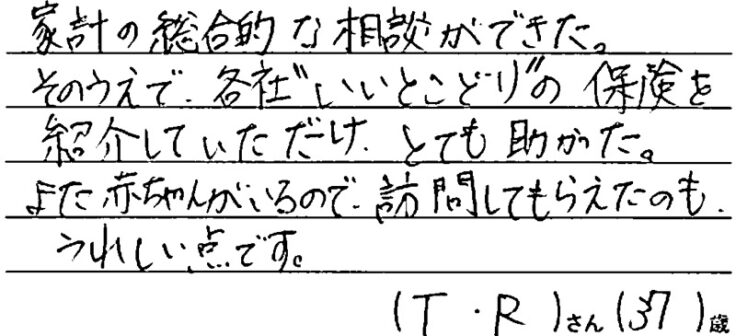 家計の総合的な相談ができた。
そのうえで、各社"いいとこどり"の保険を
紹介していただけ、とても助かった。
また赤ちゃんがいるので、訪問してもらえたのも、
うれしい点です。
(T・R)さん(37)歳